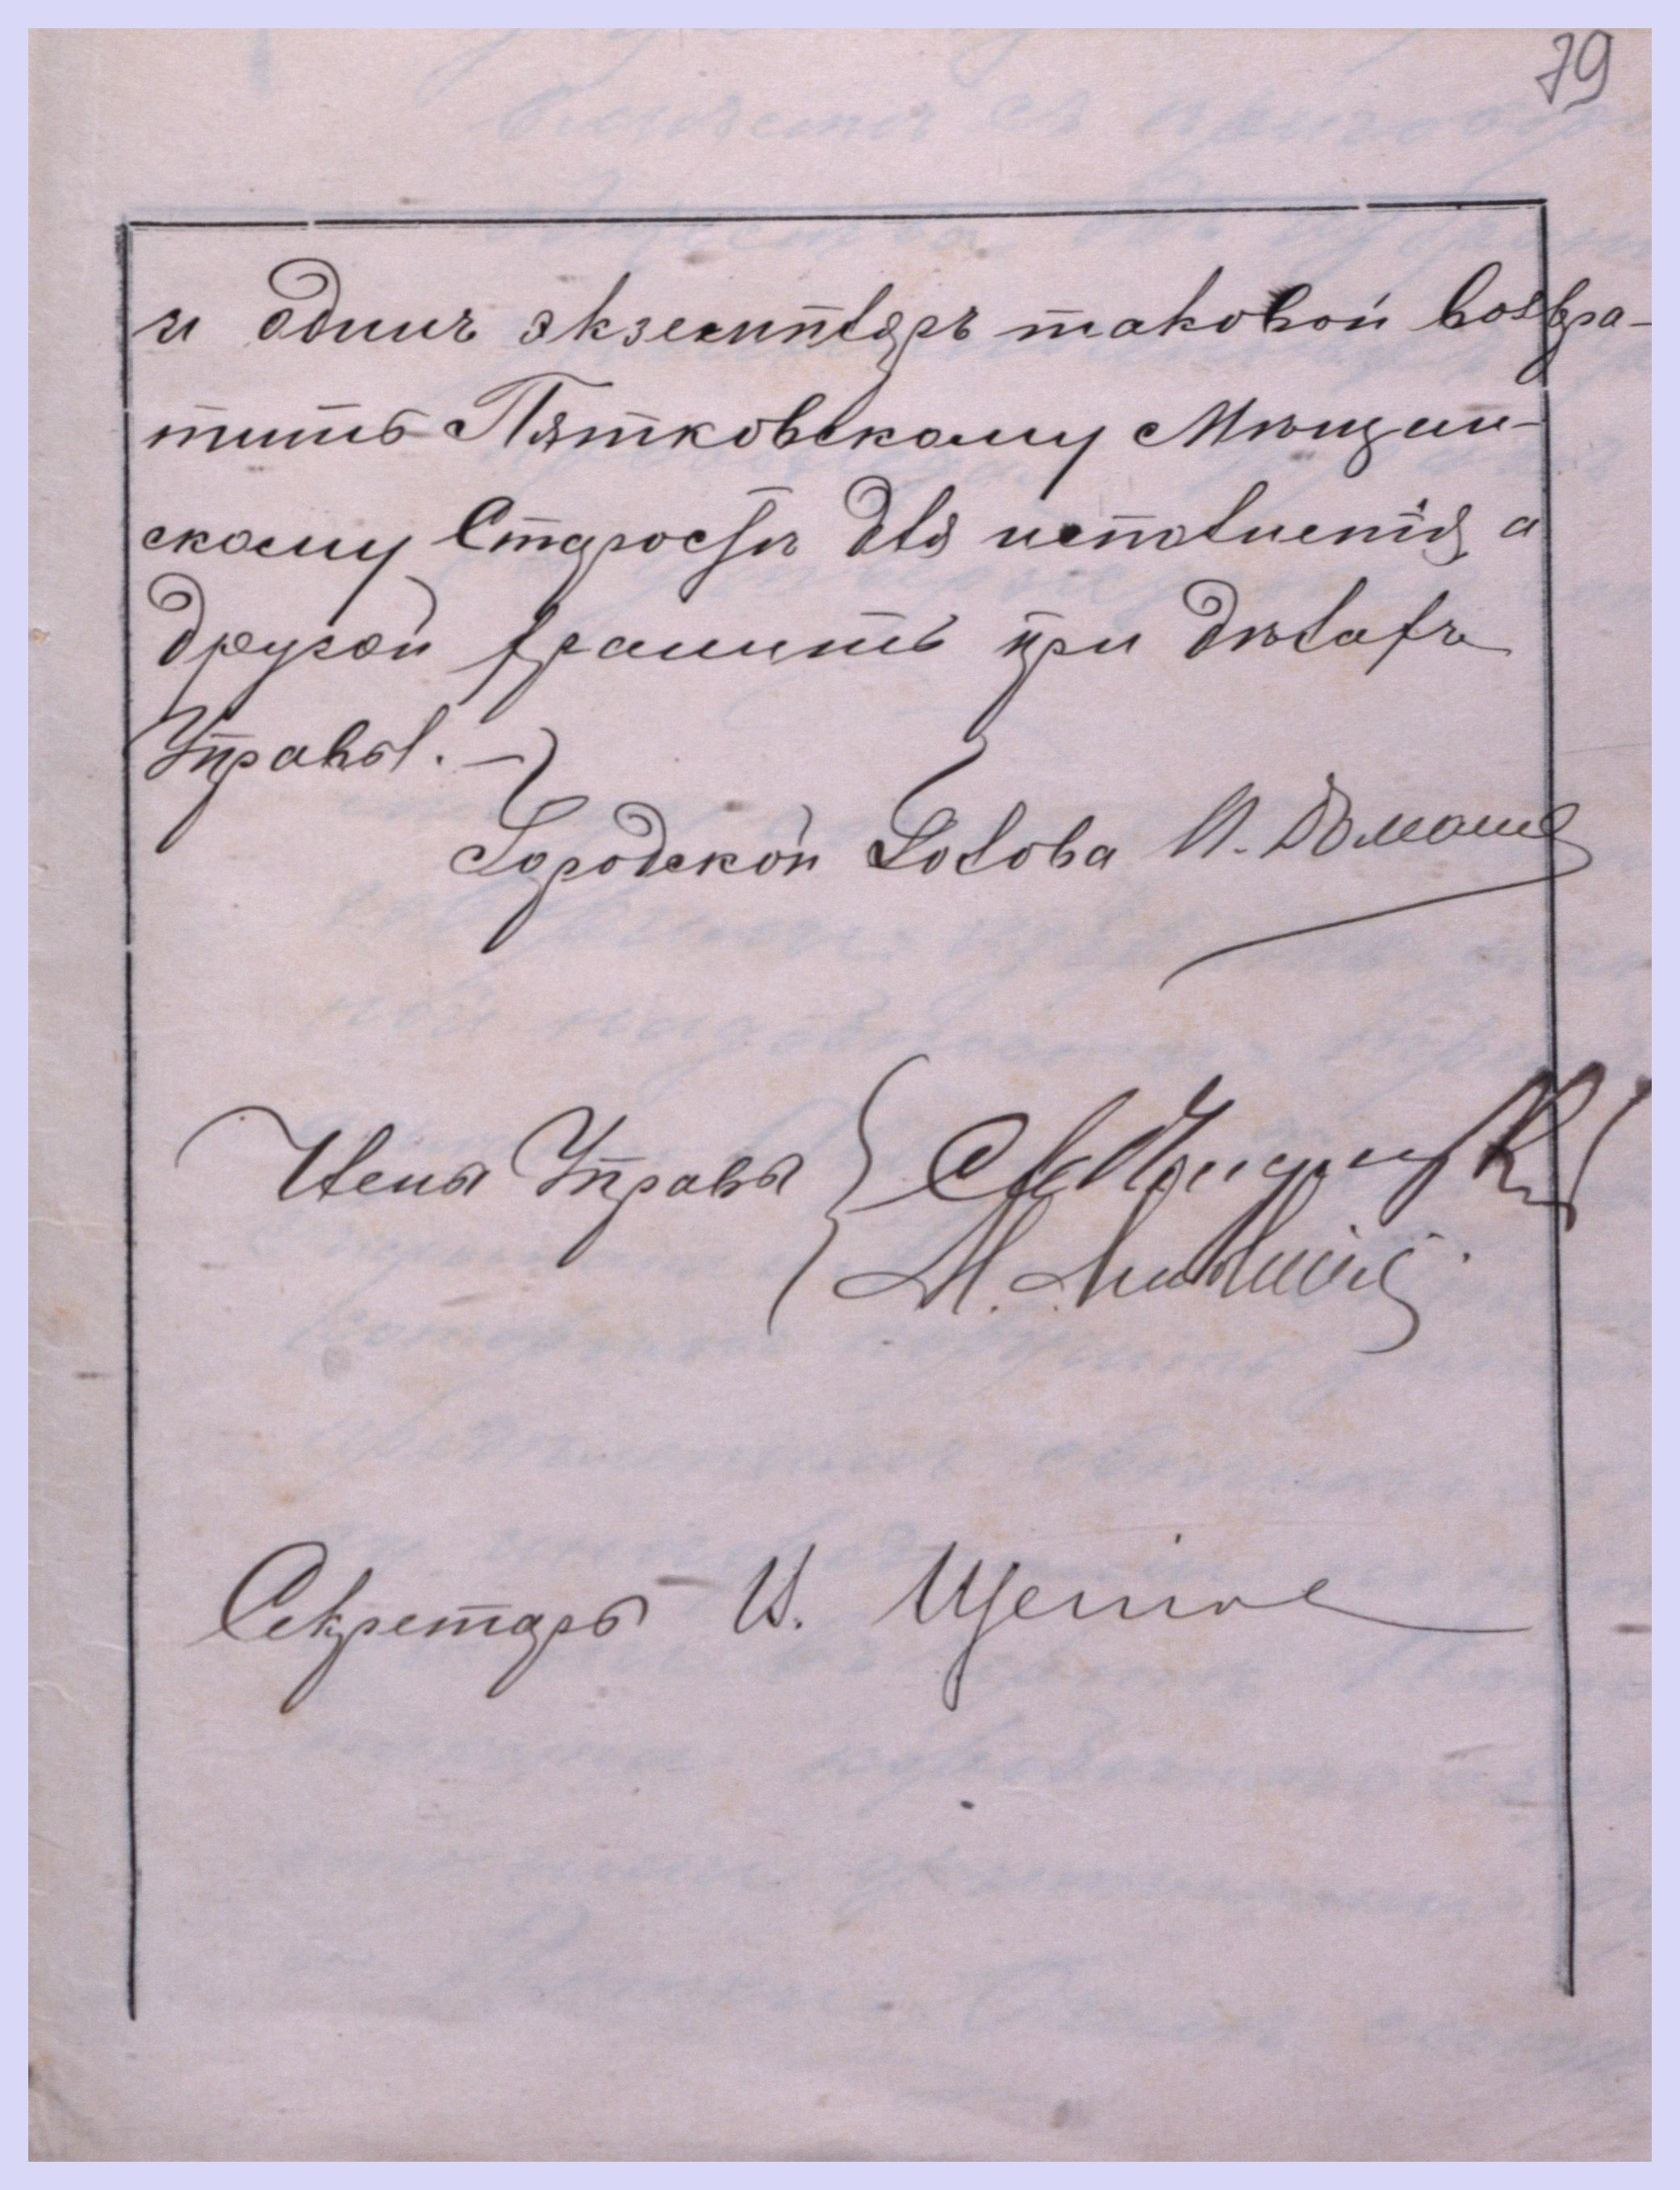 79
и одинъ экземпляръ таковой возвра-
тить Пятковскому Мѣщан-
скому Старостѣ для исполненія, а
другой хранить при дѣлахъ
Управы. —
Городской Голова И.
Члены Управы
М.
Секретарь И.